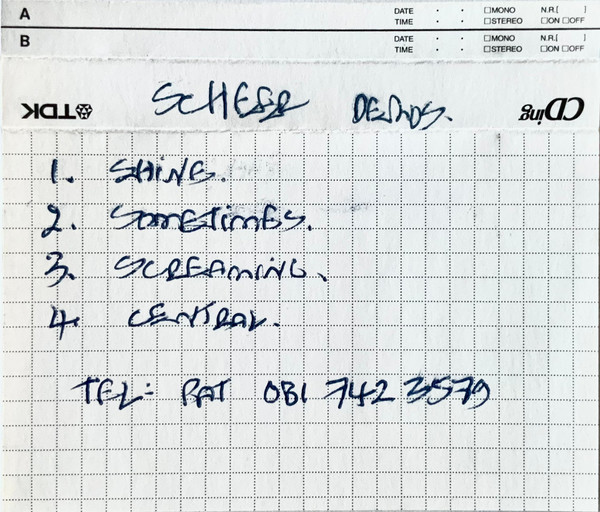 A DATE . . ☐MONO N.R.[ ]
TIME . . ☐STEREO ☐ON ☐OFF
B DATE . . ☐MONO N.R.[ ]
TIME . . ☐STEREO ☐ON ☐OFF
TDK CDing
SCHEER DEMOS.
1. SHINE.
2. SOMETIMES.
3. SCREAMING.
4. CENTRAL.
TEL: PAT 081 742 3579